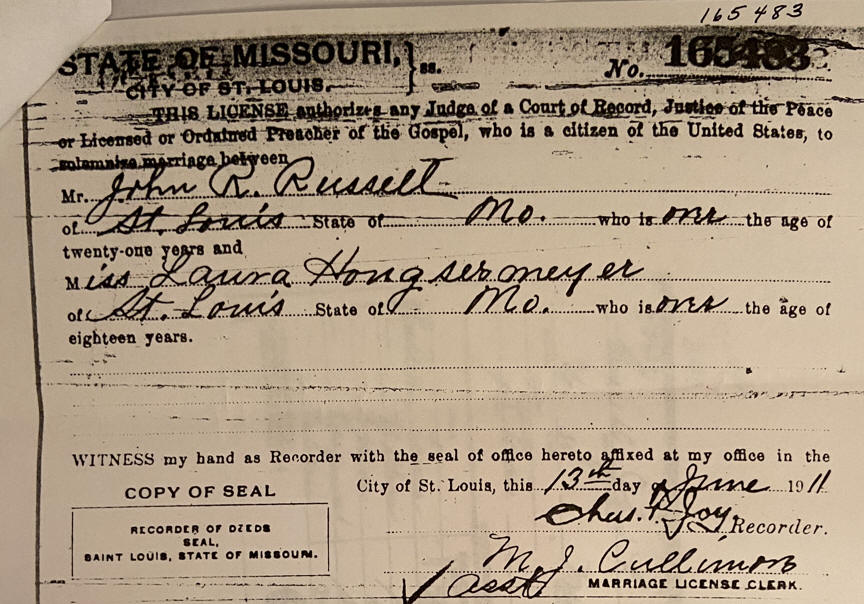 165483
STATE OF MISSOURI, } ss. No. 165483
CITY OF ST. LOUIS.
THIS LICENSE authorizes any Judge of a Court of Record, Justice of the Peace
or Licensed or Ordained Preacher of the Gospel, who is a citizen of the United States, to
solemnize marriage between
Mr. John R. Russell
of St. Louis State of Mo. who is over the age of
twenty-one years and
Miss Laura Hongsermeyer
of St. Louis State of Mo. who is over the age of
eighteen years.
WITNESS my hand as Recorder with the seal of office hereto affixed at my office in the
City of St. Louis, this 13th day of June 1911
COPY OF SEAL
Chas. P. Joy Recorder.
RECORDER OF DEEDS
SEAL,
SAINT LOUIS, STATE OF MISSOURI.
M. J. Cullinane
Asst MARRIAGE LICENSE CLERK.